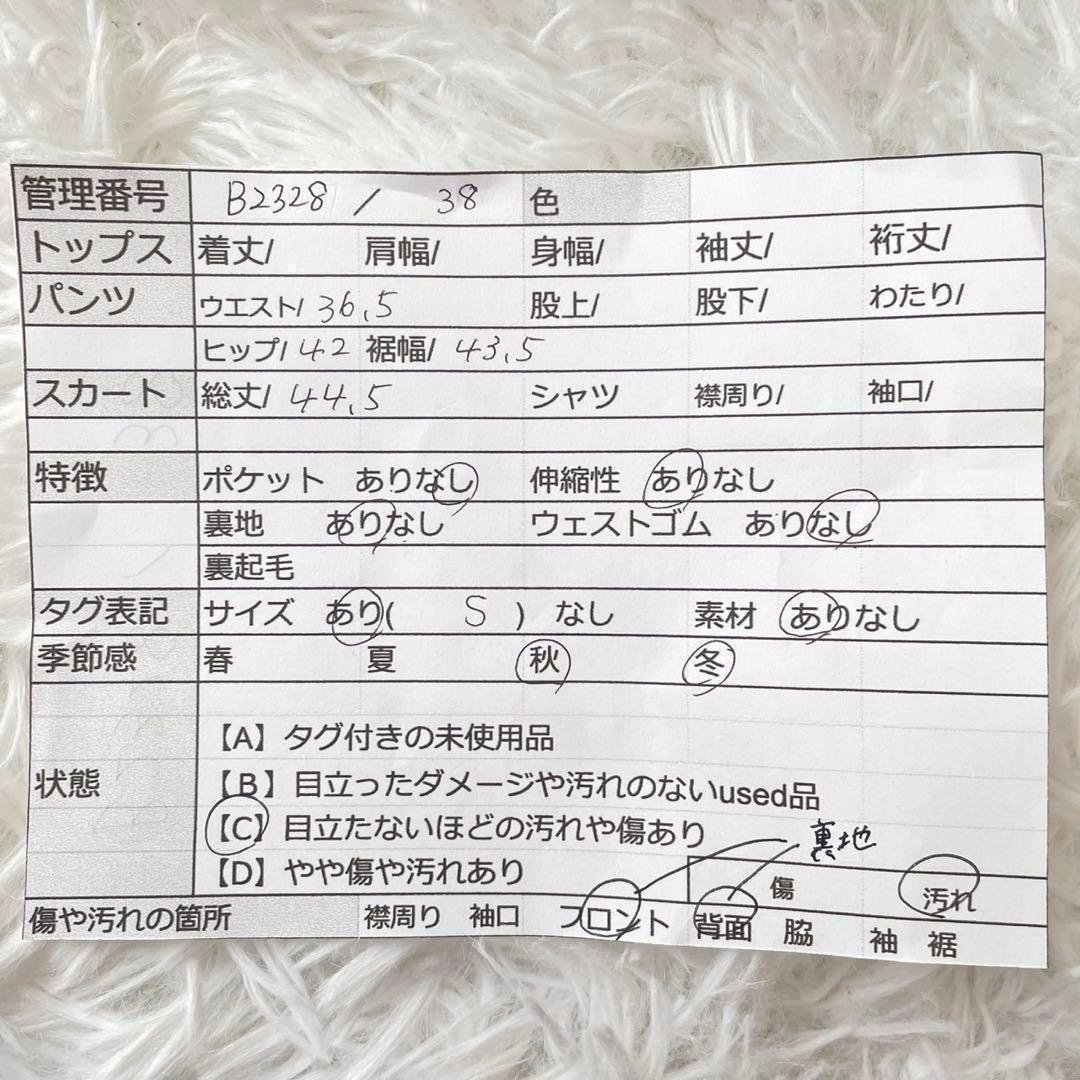 管理番号 B2328 / 38 色
トップス 着丈/ 肩幅/ 身幅/ 袖丈/ 裄丈/
パンツ ウエスト/ 36.5 股上/ 股下/ わたり/
ヒップ/ 42 裾幅/ 43.5
スカート 総丈/ 44.5 シャツ 襟周り/ 袖口/
特徴 ポケット ありなし 伸縮性 ありなし
裏地 ありなし ウェストゴム ありなし
裏起毛
タグ表記 サイズ あり( S ) なし 素材 ありなし
季節感 春 夏 秋 冬
【A】タグ付きの未使用品
状態 【B】目立ったダメージや汚れのないused品
【C】目立たないほどの汚れや傷あり 裏地
【D】やや傷や汚れあり 傷 汚れ
傷や汚れの箇所 襟周り 袖口 フロント 背面 脇 袖 裾